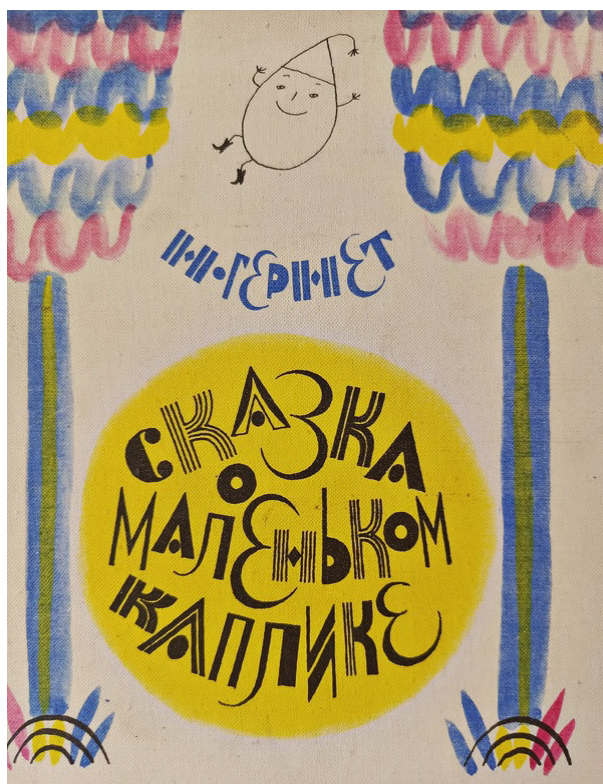 Н·ГЕРНЕТ
СКАЗКА
О
МАЛЕНЬКОМ
КАПЛИКЕ